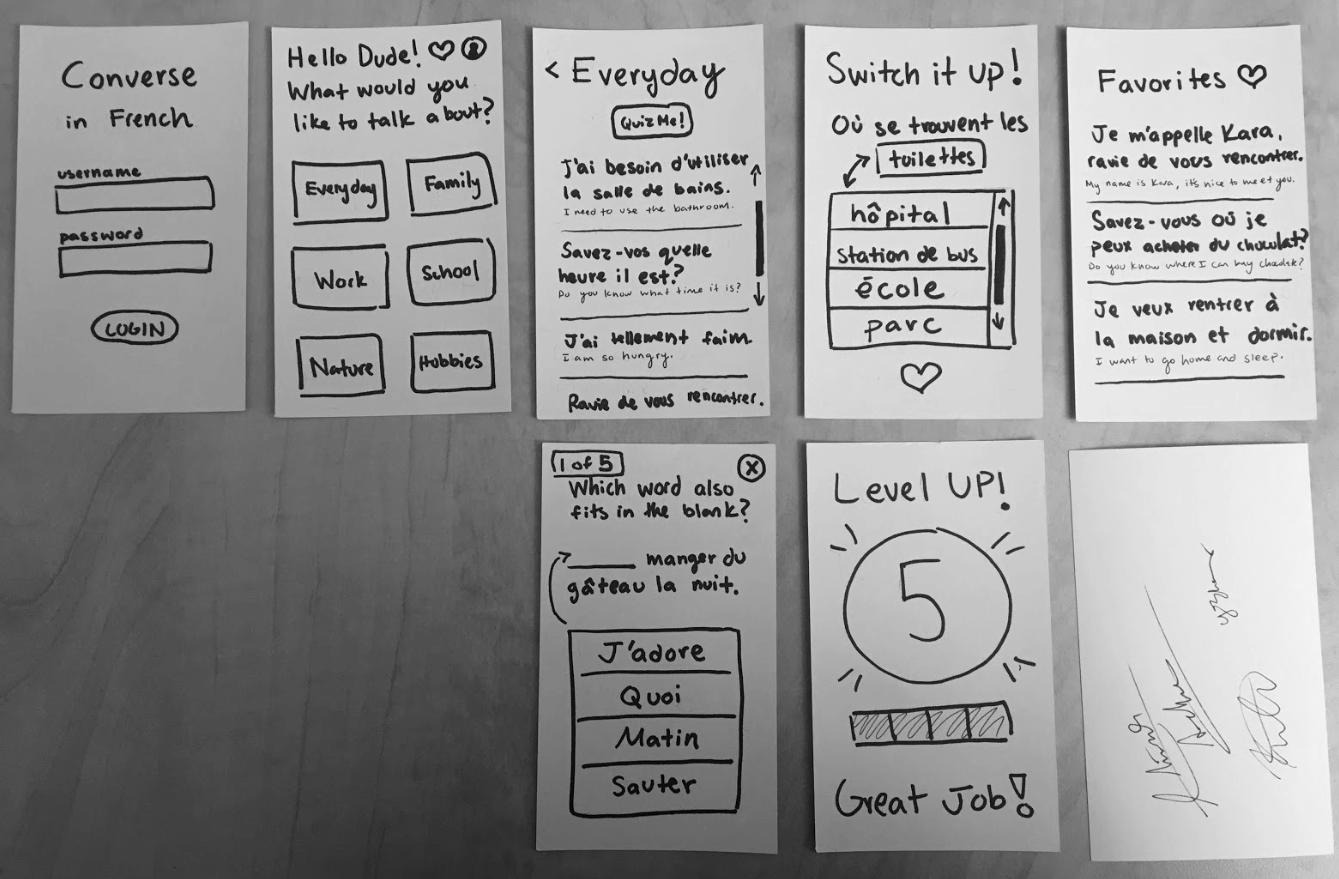 Converse
in French
username
password
LOGIN
Hello Dude!
What would you
like to talk about?
Everyday
Family
Work
School
Nature
Hobbies
< Everyday
Quiz Me!
J'ai besoin d'utiliser
la salle de bains.
I need to use the bathroom.
Savez-vos quelle
heure il est?
Do you know what time it is?
J'ai tellement faim.
I am so hungry.
Ravie de vous rencontrer.
Switch it up!
Où se trouvent les
toilettes
hôpital
station de bus
école
parc
Favorites
Je m'appelle Kara,
ravie de vous rencontrer.
My name is Kara, it's nice to meet you.
Savez-vous où je
peux acheter du chocolat?
Do you know where I can buy chocolate?
Je veux rentrer à
la maison et dormir.
I want to go home and sleep.
1 of 5
X
Which word also
fits in the blank?
manger du
gâteau la nuit.
J'adore
Quoi
Matin
Sauter
Level UP!
5
Great Job!